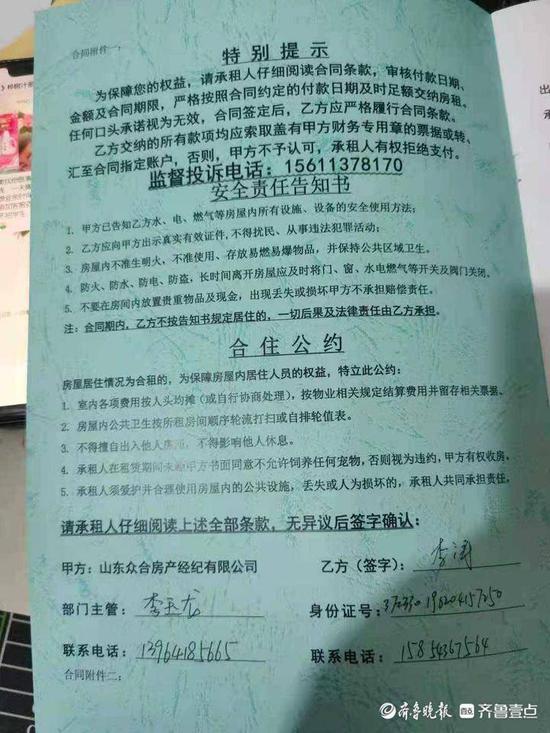 合同附件一：
特别提示
为保障您的权益，请承租人仔细阅读合同条款，审核付款日期、
金额及合同期限，严格按照合同约定的付款日期及时足额交纳房租。
任何口头承诺视为无效，合同签定后，乙方应严格履行合同条款。
乙方交纳的所有款项均应索取盖有甲方财务专用章的票据或转、
汇至合同指定账户，否则，甲方不予认可，承租人有权拒绝支付。
监督投诉电话：15611378170
安全责任告知书
1、甲方已告知乙方水、电、燃气等房屋内所有设施、设备的安全使用方法；
2、乙方应向甲方出示真实有效证件，不得扰民、从事违法犯罪活动；
3、房屋内不准生明火，不准使用、存放易燃易爆物品，并保持公共区域卫生。
4、防火、防水、防电、防盗，长时间离开房屋应及时将门、窗、水电燃气等开关及阀门关闭。
5、不要在房间内放置贵重物品及现金，出现丢失或损坏甲方不承担赔偿责任。
注：合同期内，乙方不按告知书规定居住的，一切后果及法律责任由乙方承担。
合住公约
房屋居住情况为合租的，为保障房屋内居住人员的权益，特立此公约：
1、室内各项费用按人头均摊（或自行协商处理），按物业相关规定结算费用并留存相关票据。
2、房屋内公共卫生按所租房间顺序轮流打扫或自排轮值表。
3、不得擅自出入他人房间，不得影响他人休息。
4、承租人在租赁期间未经甲方书面同意不允许饲养任何宠物，否则视为违约，甲方有权收房。
5、承租人须爱护并合理使用房屋内的公共设施，丢失或人为损坏的，承租人共同承担责任。
请承租人仔细阅读上述全部条款，无异议后签字确认：
甲方：山东众合房产经纪有限公司 乙方（签字）：李涛
部门主管：李玉龙 身份证号：
联系电话：13964185665 联系电话：15854367564
合同附件二：
齐鲁晚报 齐鲁壹点